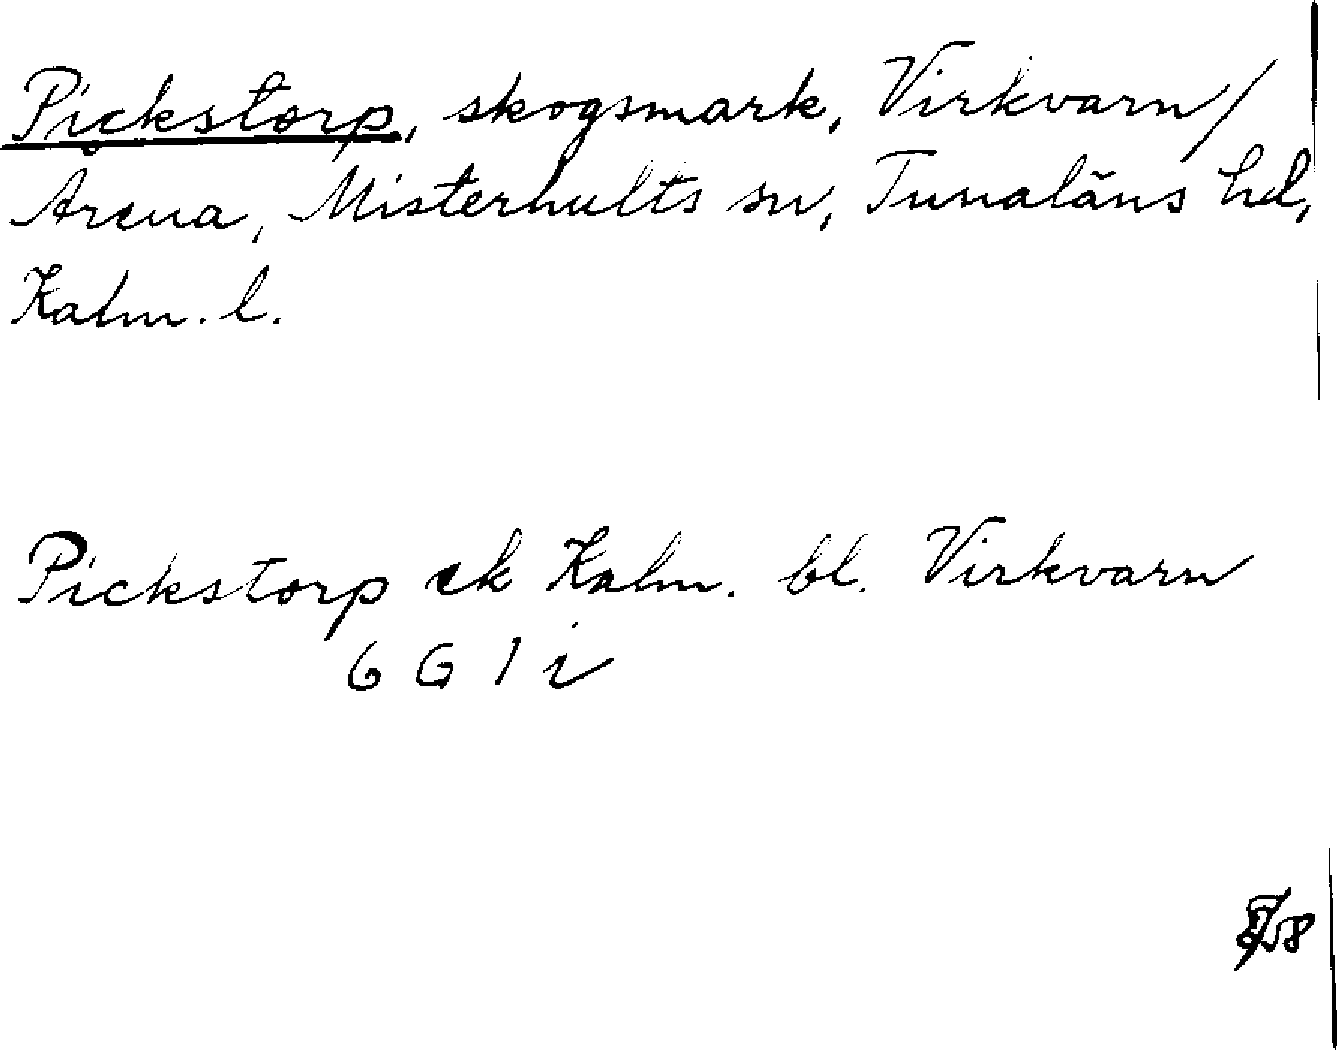 Pickstorp, skogsmark, Virkvarn/
Årena, Misterhults sn, Tunaläns hd,
Kalm. l.
Pickstorp ek Kalm. bl. Virkvarn
6 G 1 i